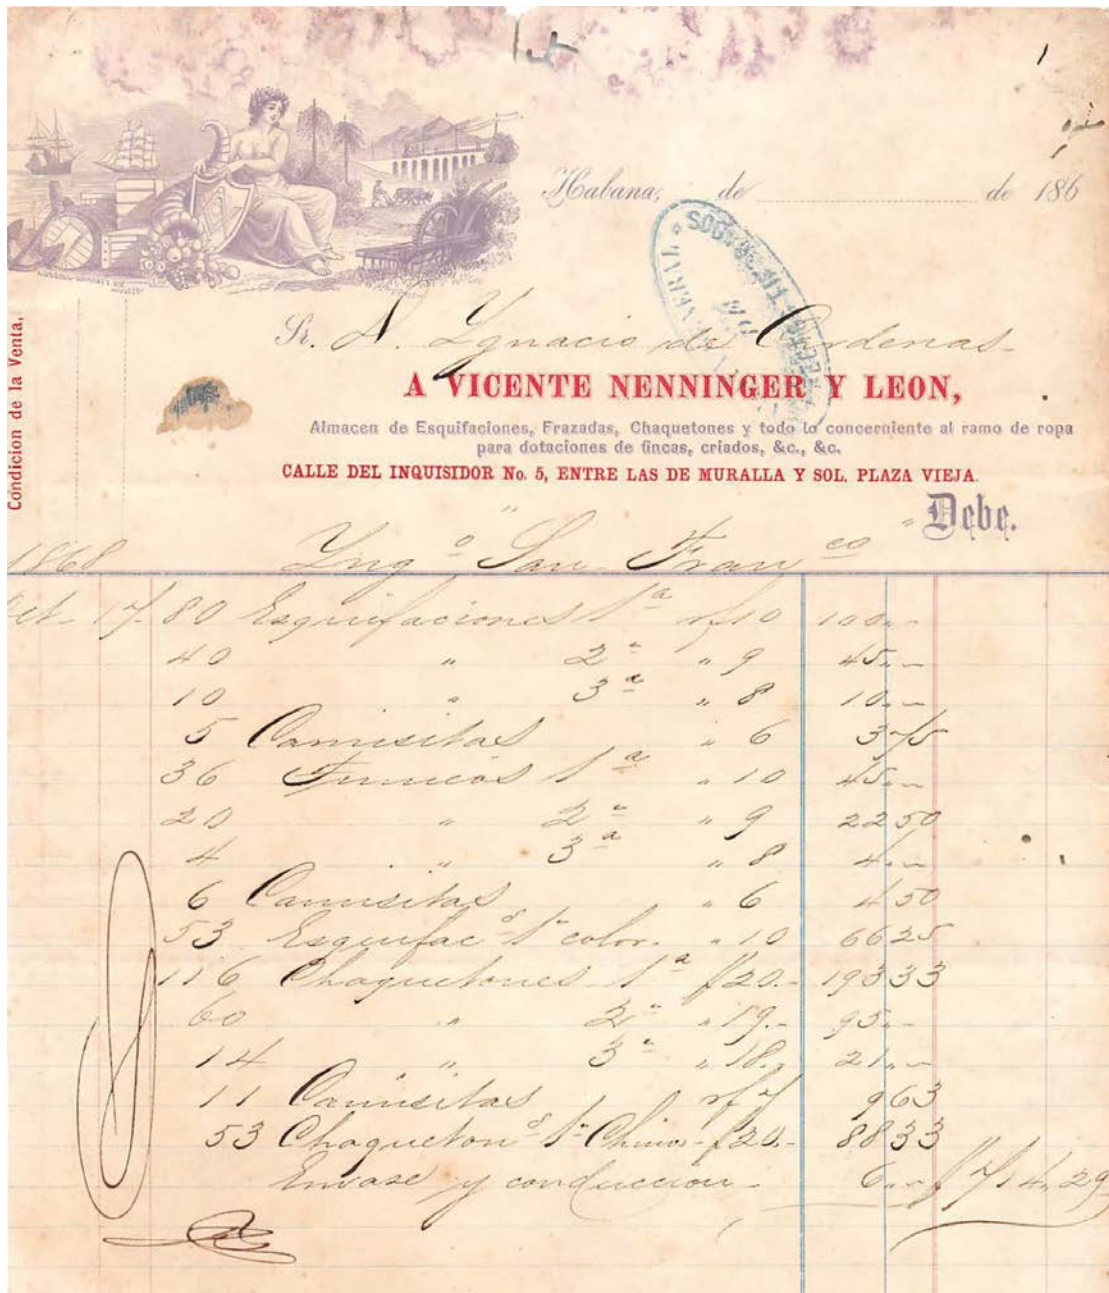 1
Habana, de de 186
SOC
GENERAL
Sr. D. Ygnacio de Cárdenas.
A VICENTE NENNINGER Y LEON,
Almacen de Esquifaciones, Frazadas, Chaquetones y todo lo concerniente al ramo de ropa
para dotaciones de fincas, criados, &c., &c.
CALLE DEL INQUISIDOR No. 5, ENTRE LAS DE MURALLA Y SOL. PLAZA VIEJA.
Condicion de la Venta,
Debe.
1868 Yngº "San Franco"
17. 80 Esquifaciones 1ª 10 100.."
40 " 2ª " 9 45.."
10 " 3ª " 8 10.."
5 Camisitas " 6 3 75
36 Tunicos 1ª " 10 45.."
20 " 2ª " 9 22 50
4 " 3ª " 8 4.."
6 Camisitas " 6 4 50
53 Esquifacs 1ª color. " 10 66 25
116 Chaquetones 1ª $20.- 193 33
60 " 2ª " 19.- 95.-
14 " 3ª " 18. 21.."
11 Camisitas 7 9 63
53 Chaquetons 1ª Chinos - $20.- 88 33
Envase y conduccion - 6.." $ 714.29